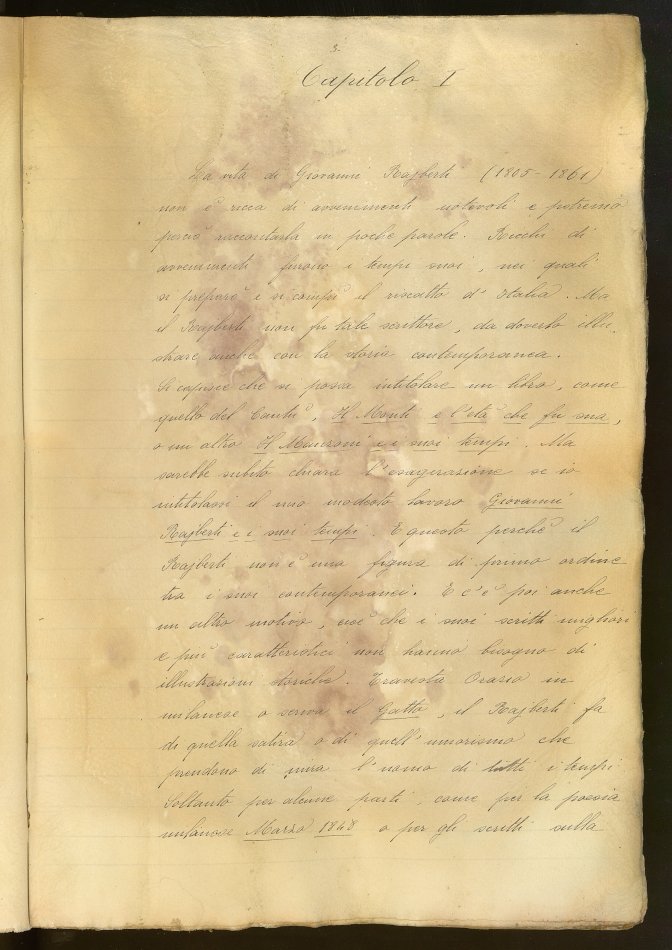 3.
Capitolo I
La vita di Giovanni Rajberti (1805-1861)
non è ricca di avvenimenti notevoli e potremo
perciò raccontarla in poche parole. Ricchi di
avvenimenti furono i tempi suoi, nei quali
si preparò e si compì il riscatto d'Italia. Ma
il Rajberti non fu tale scrittore, da doverlo illu-
strare anche con la storia contemporanea.
Si capisce che si possa intitolare un libro, come
quello del Cantù, Il Monti e l'età che fu sua,
o un altro Il Manzoni e i suoi tempi. Ma
sarebbe subito chiara l'esagerazione se io
intitolassi il mio modesto lavoro Giovanni
Rajberti e i suoi tempi. E questo perchè il
Rajberti non è una figura di primo ordine
tra i suoi contemporanei. E c'è poi anche
un altro motivo, cioè che i suoi scritti migliori
e più caratteristici non hanno bisogno di
illustrazioni storiche. Travesta Orazio in
milanese o scriva il Gatto, il Rajberti fa
di quella satira o di quell'umorismo che
prendono di mira l'uomo di tutti i tempi
Soltanto per alcune parti, come per la poesia
milanese Marzo 1848 o per gli scritti sulla